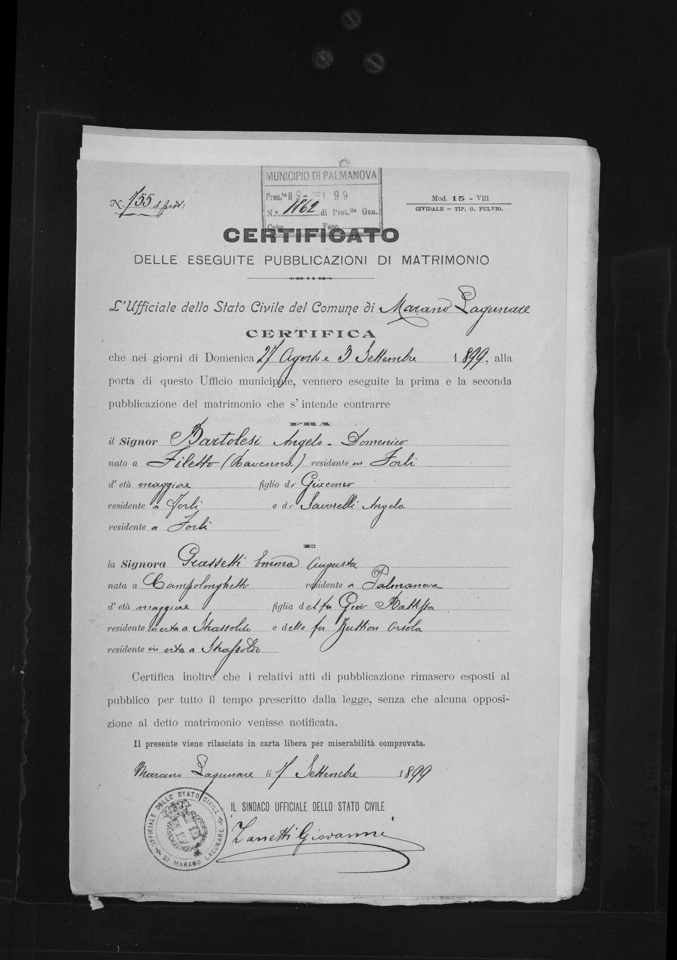 MUNICIPIO DI PALMANOVA
N. 755 d. prot:
Mod. 15 - VIII
CIVIDALE - TIP. G. FULVIO.
99
N.° 11862 di Prot.llo Gen.
CERTIFICATO
DELLE ESEGUITE PUBBLICAZIONI DI MATRIMONIO
L'Ufficiale dello Stato Civile del Comune di Marano Lagunare
CERTIFICA
che nei giorni di Domenica 27 Agosto e 3 Settembre 1899, alla
porta di questo Ufficio municipale, vennero eseguite la prima e la seconda
pubblicazione del matrimonio che s'intende contrarre
FRA
il Signor Bartolesi Angelo - Domenico
nato a Filetto (Ravenna) residente in Forlì
d'età maggiore figlio di Giacomo
residente a Forlì e di Savorelli Angela
residente a Forlì
E
la Signora Grassetti Emma Augusta
nata a Campolonghetto residente a Palmanova
d'età maggiore figlia del fu Giov Battista
residente in vita a Strassoldo e della fu Zuttion Orsola
residente in vita a Strassoldo
Certifica inoltre che i relativi atti di pubblicazione rimasero esposti al
pubblico per tutto il tempo prescritto dalla legge, senza che alcuna opposi-
zione al detto matrimonio venisse notificata.
Il presente viene rilasciato in carta libera per miserabilità comprovata.
Marano Lagunare li 7 Settembre 1899
IL SINDACO UFFICIALE DELLO STATO CIVILE
Zanetti Giovanni
UFFICIALE DELLO STATO CIVILE
DI MARANO LAGUNARE